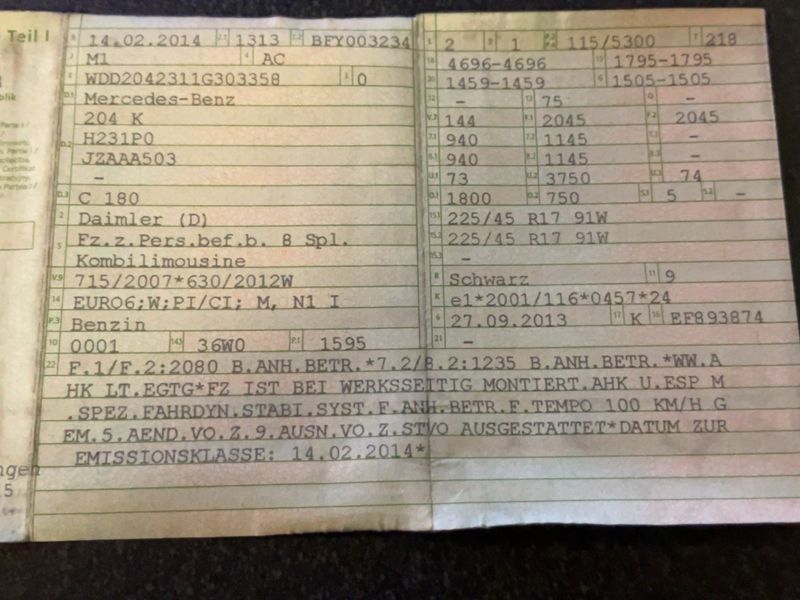 Teil I
B 14.02.2014 2.1 1313 2.2 BFY003234
J M1 4 AC
E WDD2042311G303358 3 0
D.1 Mercedes-Benz
204 K
D.2 H231P0
JZAAA503
-
D.3 C 180
2 Daimler (D)
5 Fz.z.Pers.bef.b. 8 Spl.
Kombilimousine
V.9 715/2007*630/2012W
14 EURO6;W;PI/CI; M, N1 I
P.3 Benzin
10 0001 14.1 36W0 P.1 1595
22 F.1/F.2:2080 B.ANH.BETR.*7.2/8.2:1235 B.ANH.BETR.*WW.A
HK LT.EGTG*FZ IST BEI WERKSSEITIG MONTIERT.AHK U.ESP M
.SPEZ.FAHRDYN.STABI.SYST.F.ANH.BETR.F.TEMPO 100 KM/H G
EM.5.AEND.VO.Z.9.AUSN.VO.Z.STVO AUSGESTATTET*DATUM ZUR
EMISSIONSKLASSE: 14.02.2014*
L 2 9 1 P.2 P.4 115/5300 T 218
18 4696-4696 19 1795-1795
20 1459-1459 G 1505-1505
12 - 13 75 Q -
V.7 144 F.1 2045 F.2 2045
7.1 940 7.2 1145 7.3 -
8.1 940 8.2 1145 8.3 -
U.1 73 U.2 3750 U.3 74
O.1 1800 O.2 750 S.1 5 S.2 -
15.1 225/45 R17 91W
15.2 225/45 R17 91W
15.3 -
R Schwarz 11 9
K e1*2001/116*0457*24
6 27.09.2013 17 K 16 EF893874
21 -